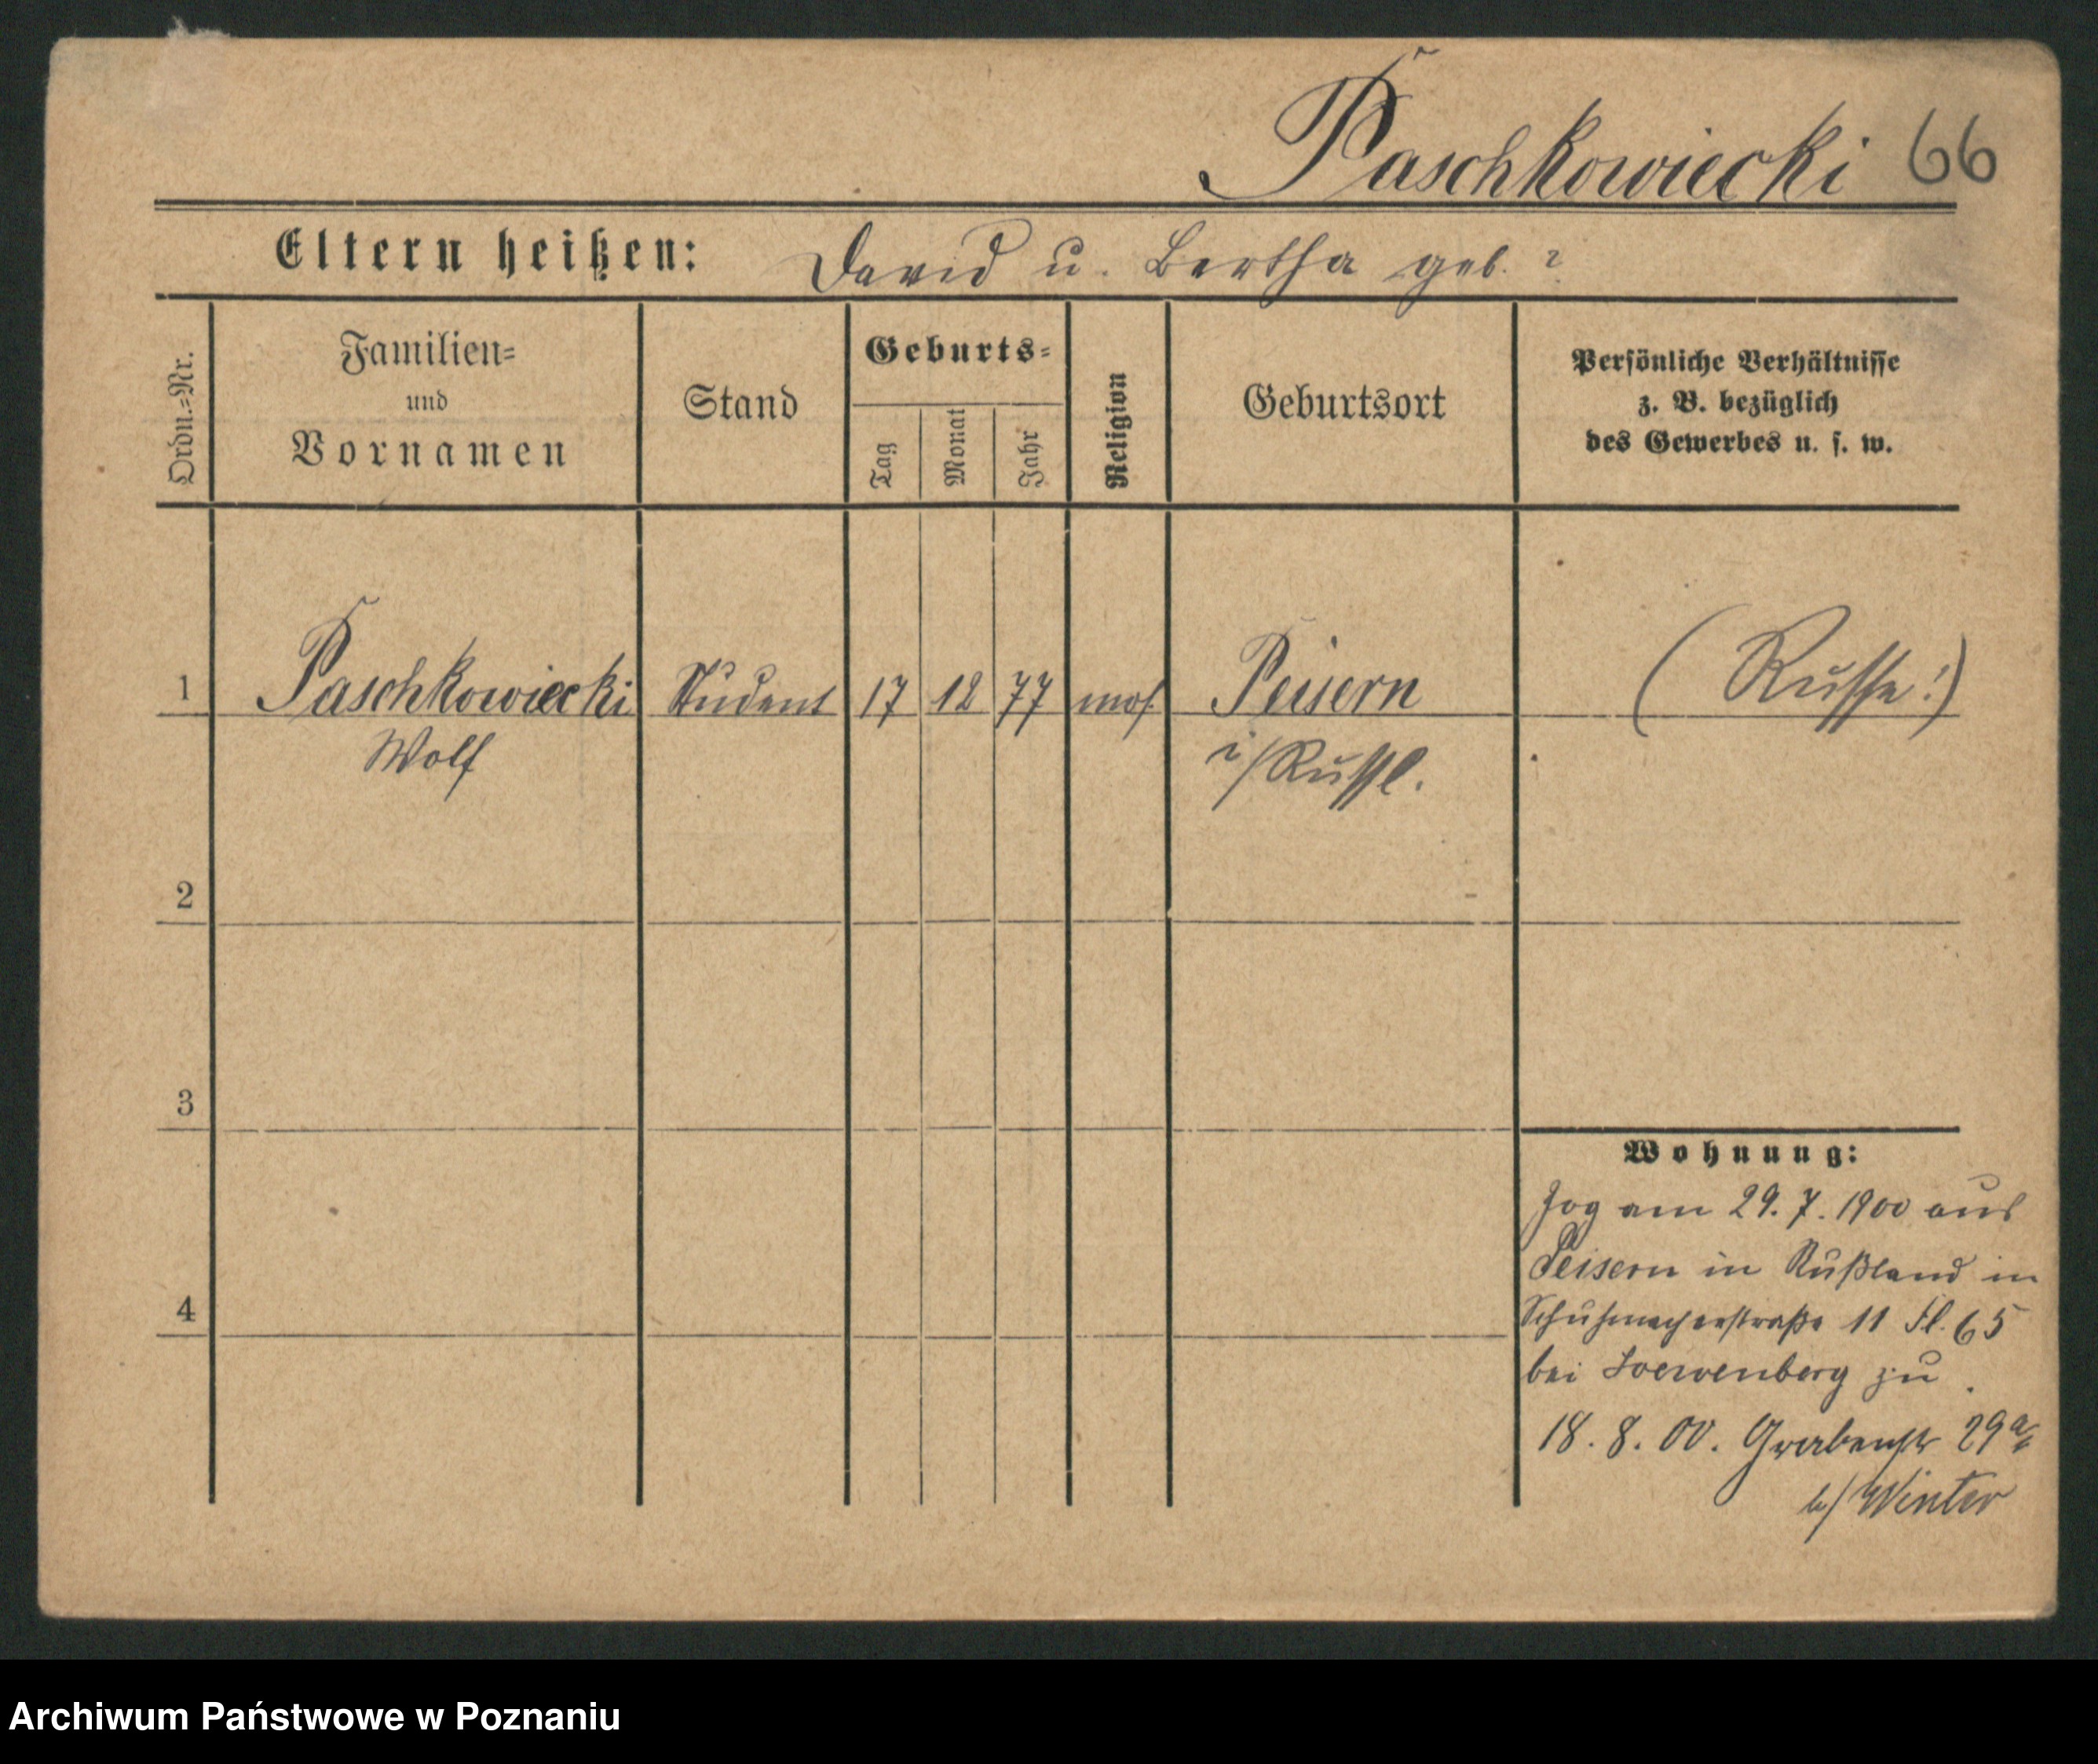 Paschkowiecki 66
Eltern heißen: David u. Bertha geb. ?
Ordn.=Nr.
Familien=
und
Vornamen
Stand
Geburts=
Tag
Monat
Jahr
Religion
Geburtsort
Persönliche Verhältnisse
z. B. bezüglich
des Gewerbes u. s. w.
1 Paschkowiecki Student 17 12 77 mos. Peisern (Russe!)
Wolf i/Russl.
2
3
4
Wohnung:
Zog am 29. 7. 1900 aus
Peisern in Rußland in
Schuhmacherstraße 11 Fl. 65
bei Loewenberg zu
18. 8. 00. Grabenstr 29a
b/ Winter
Archiwum Państwowe w Poznaniu